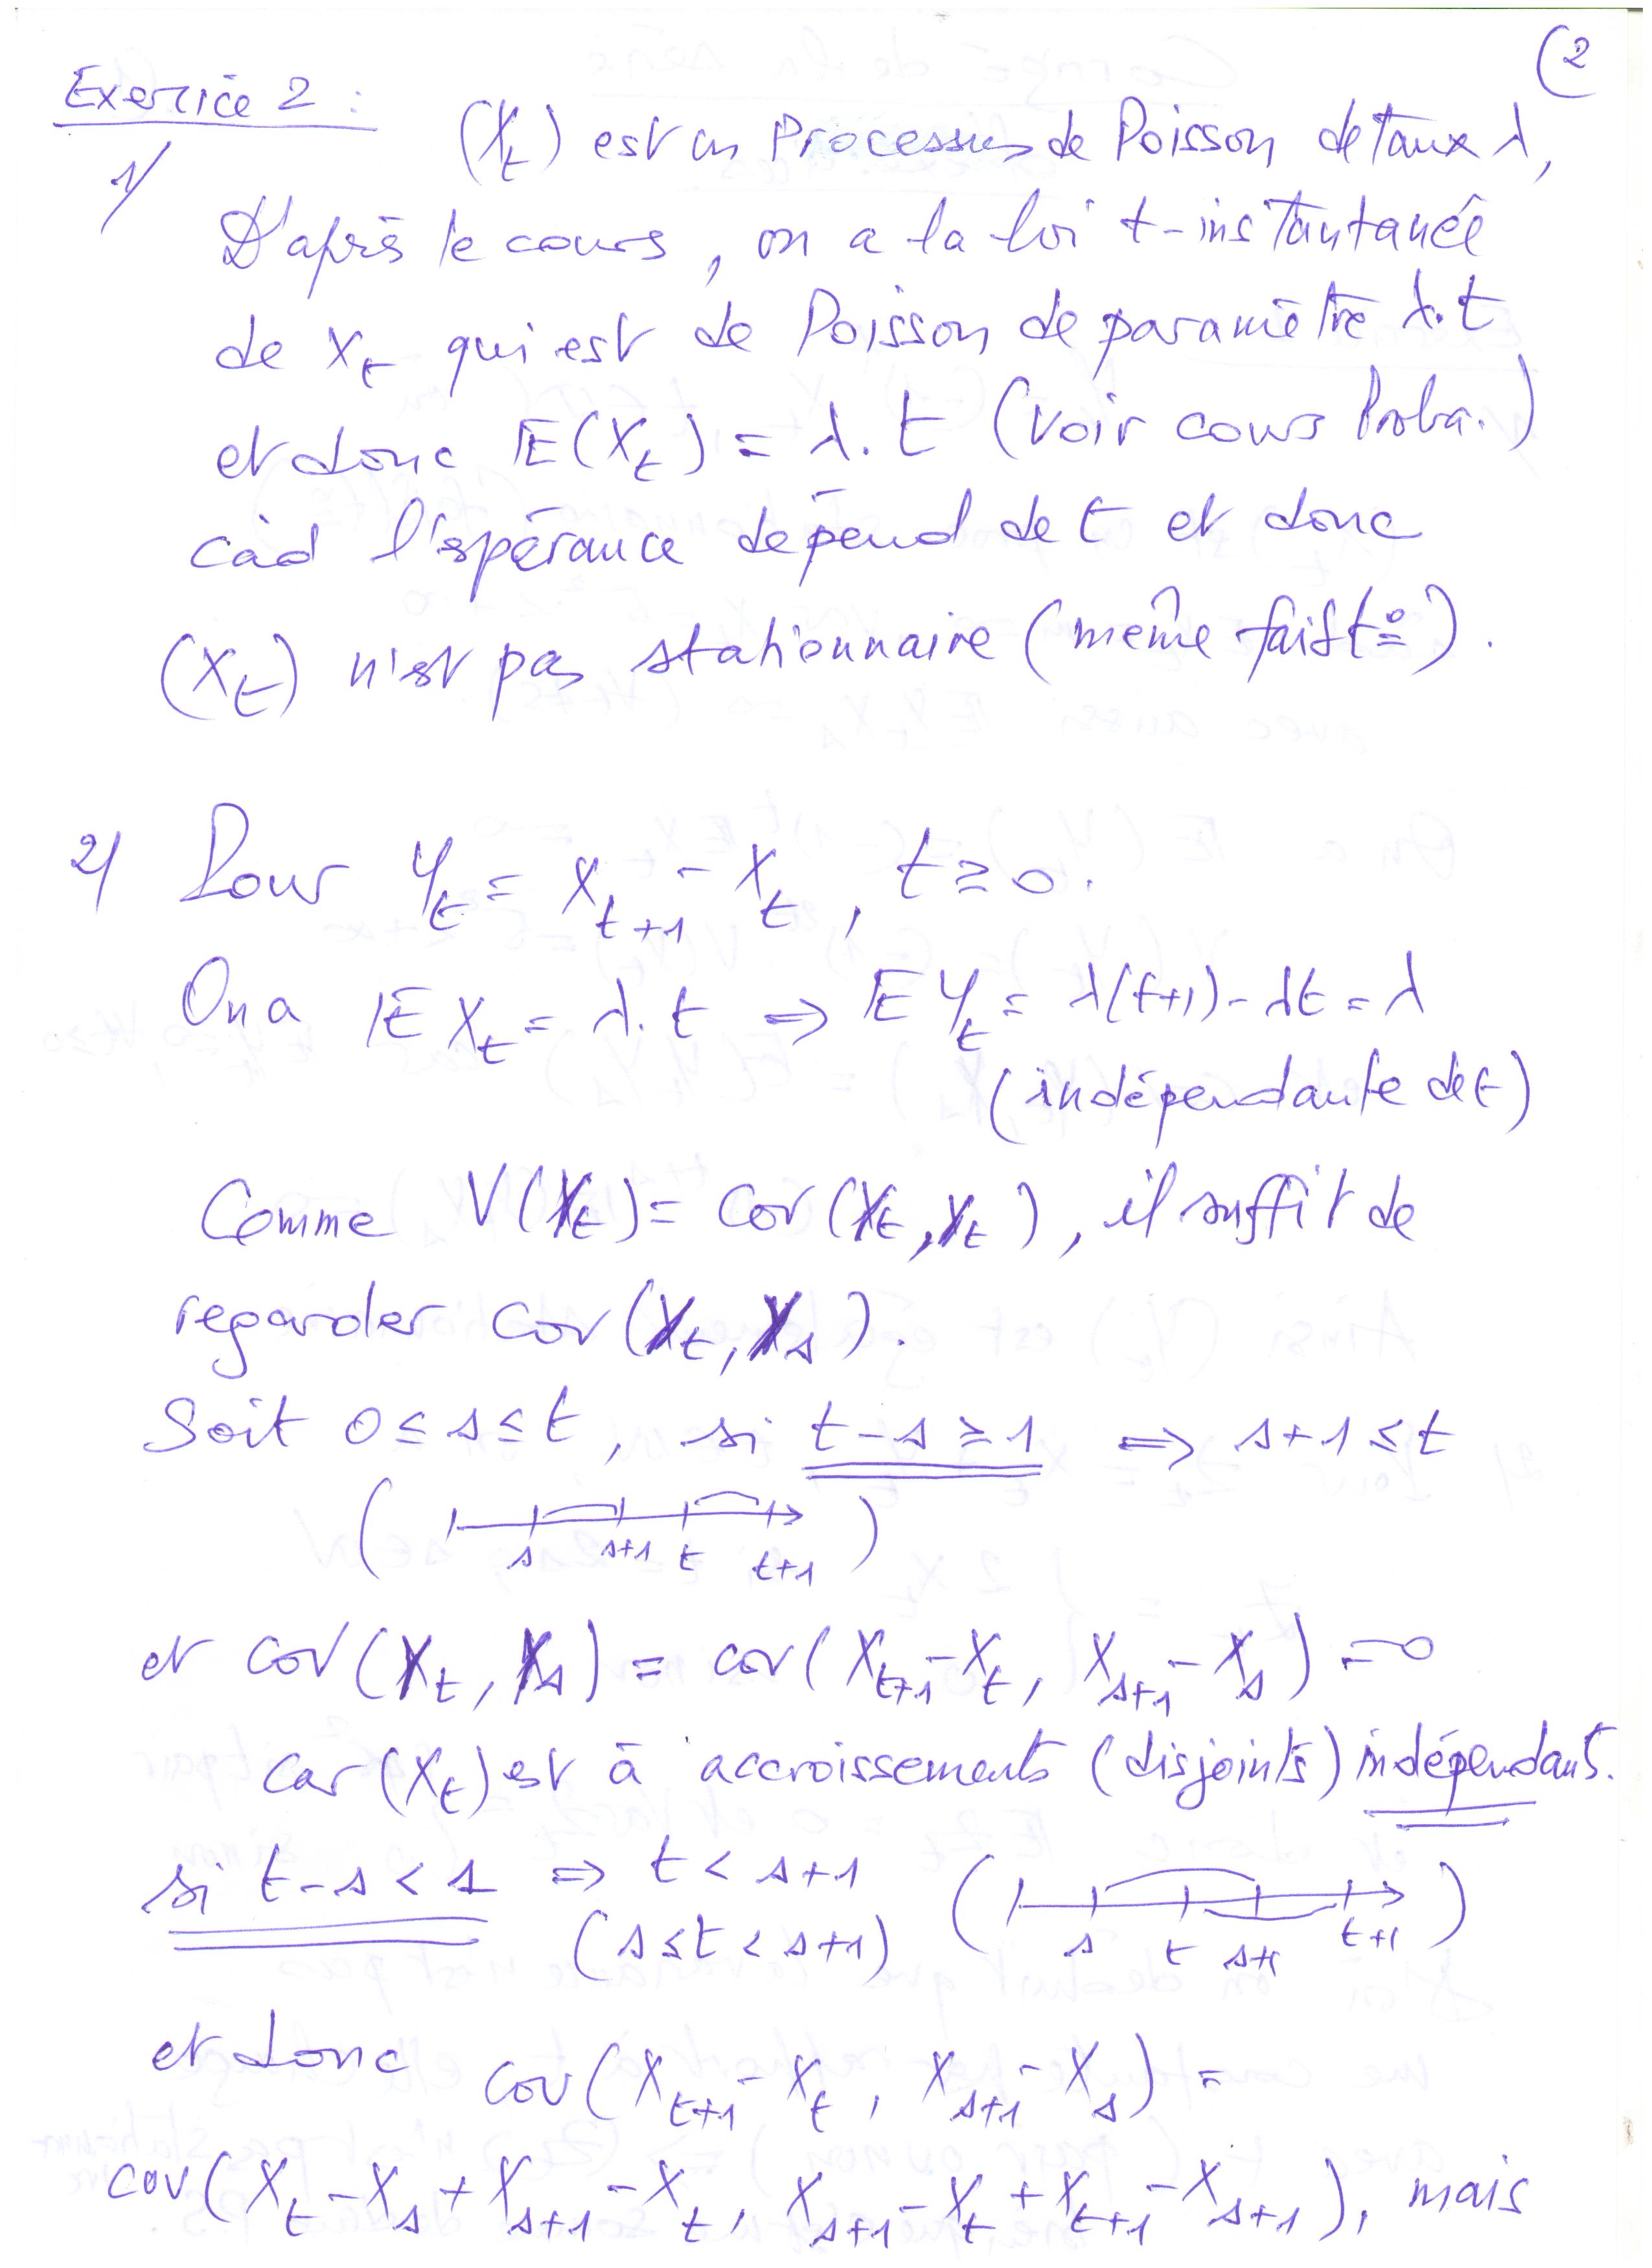 (2
Exercice 2 :
1/ (X_t) est un Processus de Poisson de taux λ,
D'après le cours, on a la loi t-instantanée
de X_t qui est de Poisson de paramètre λ.t
et donc IE(X_t) = λ.t (voir cours Proba.)
càd l'espérance dépend de t et donc
(X_t) n'est pas stationnaire (même faibt=).
2/ Pour Y_t = X_{t+1} - X_t, t ≥ 0.
On a IE X_t = λ.t ⇒ IE Y_t = λ(t+1) - λt = λ
(indépendante de t)
Comme V(Y_t) = cov(Y_t, Y_t), il suffit de
regarder cov(Y_t, Y_s).
Soit 0 ≤ s ≤ t, si t-s ≥ 1 ⇒ s+1 ≤ t
( s s+1 t t+1 )
et cov(Y_t, Y_s) = cov(X_{t+1} - X_t, X_{s+1} - X_s) = 0
car (X_t) est à accroissements (disjoints) indépendants.
si t-s < 1 ⇒ t < s+1
(s ≤ t < s+1) ( s t s+1 t+1 )
et donc cov(X_{t+1} - X_t, X_{s+1} - X_s) =
cov(X_t - X_s + X_{s+1} - X_t, X_{s+1} - X_t + X_{t+1} - X_{s+1}), mais